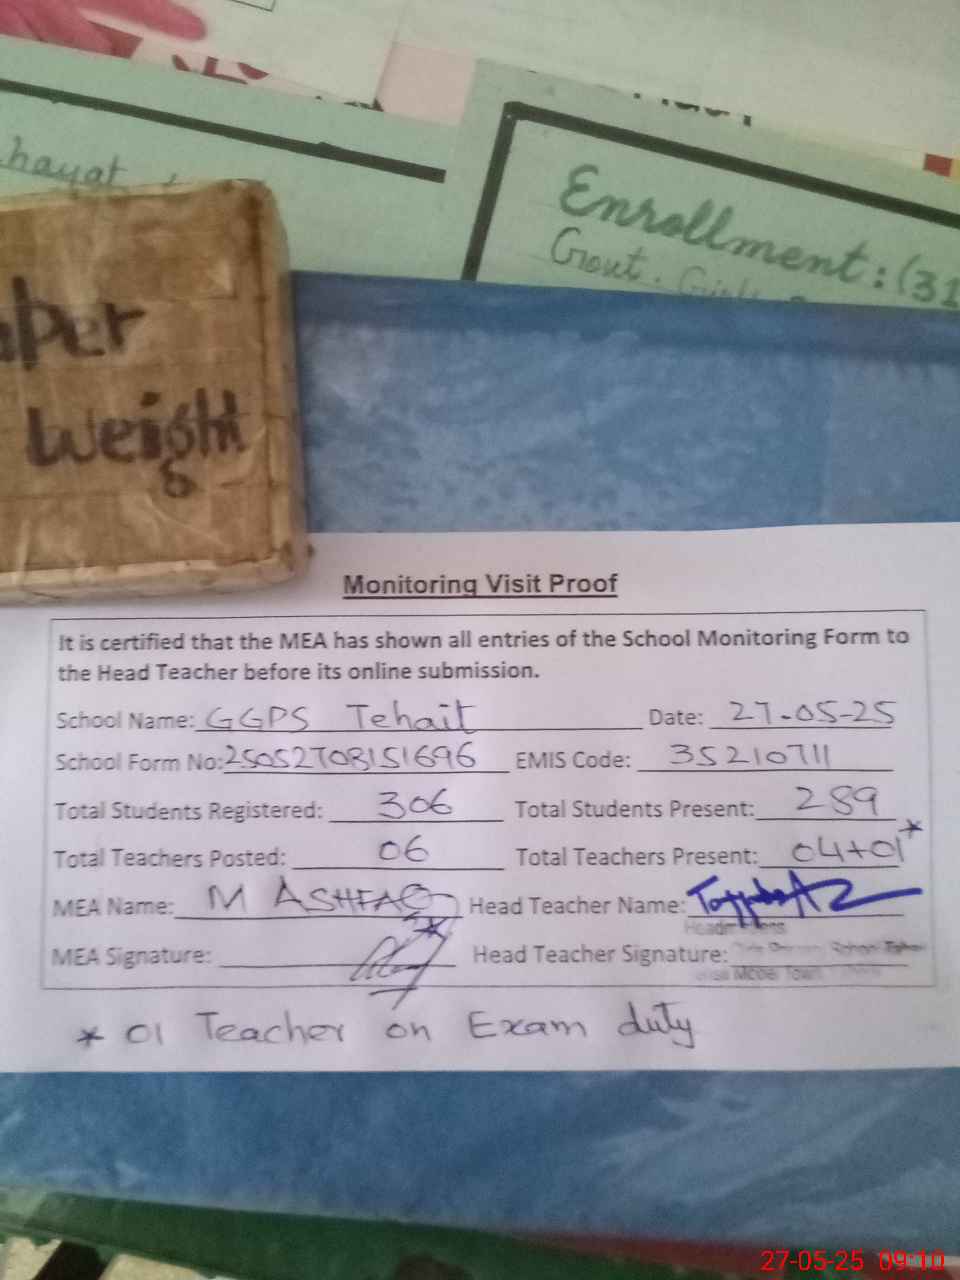 hayat
Enrollment: (31
Govt. Girls
aper
weight
Monitoring Visit Proof
It is certified that the MEA has shown all entries of the School Monitoring Form to
the Head Teacher before its online submission.
School Name: GGPS Tehait Date: 27-05-25
School Form No: 25052708151696 EMIS Code: 35210711
Total Students Registered: 306 Total Students Present: 289
Total Teachers Posted: 06 Total Teachers Present: 04+01*
MEA Name: M ASHFAQ Head Teacher Name:
MEA Signature: Head Teacher Signature:
Model Town
* 01 Teacher on Exam duty
27-05-25 09:10